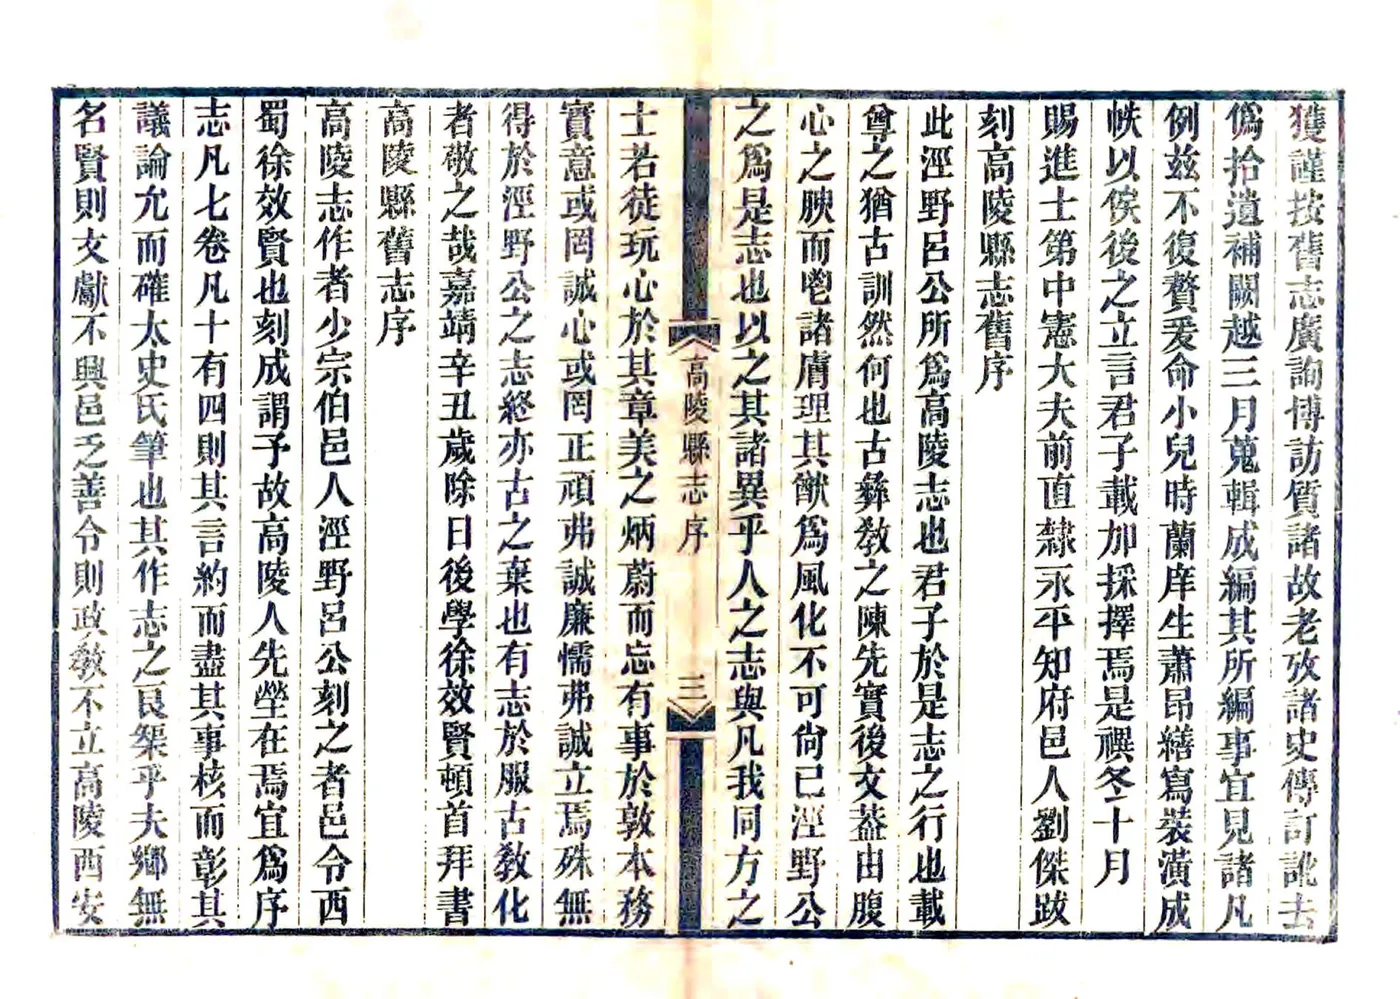 獲謹按舊志廣詢博訪質諸故老攷諸史傳訂訛去
僞拾遺補闕越三月蒐輯成編其所編事宜見諸凡
例茲不復贅爰命小兒時蘭庠生蕭昂繕寫裝潢成
帙以俟後之立言君子載加採擇焉是禩冬十月
賜進士第中憲大夫前直隸永平知府邑人劉傑跋
刻高陵縣志舊序
此涇野呂公所爲高陵志也君子於是志之行也載
尊之猶古訓然何也古彝教之陳先實後文蓋由腹
心之腴而鬯諸膚理其猷爲風化不可尙已涇野公
之爲是志也以之其諸異乎人之志與凡我同方之
高陵縣志序
三
士若徒玩心於其章美之炳蔚而忘有事於敦本務
實意或罔誠心或罔正頑弗誠廉懦弗誠立焉殊無
得於涇野公之志終亦古之棄也有志於服古教化
者敬之哉嘉靖辛丑歲除日後學徐效賢頓首拜書
高陵縣舊志序
高陵志作者少宗伯邑人涇野呂公刻之者邑令西
蜀徐效賢也刻成謂予故高陵人先塋在焉宜爲序
志凡七卷凡十有四則其言約而盡其事核而彰其
議論允而確太史氏筆也其作志之良榘乎夫鄉無
名賢則文獻不興邑乏善令則政教不立高陵西安